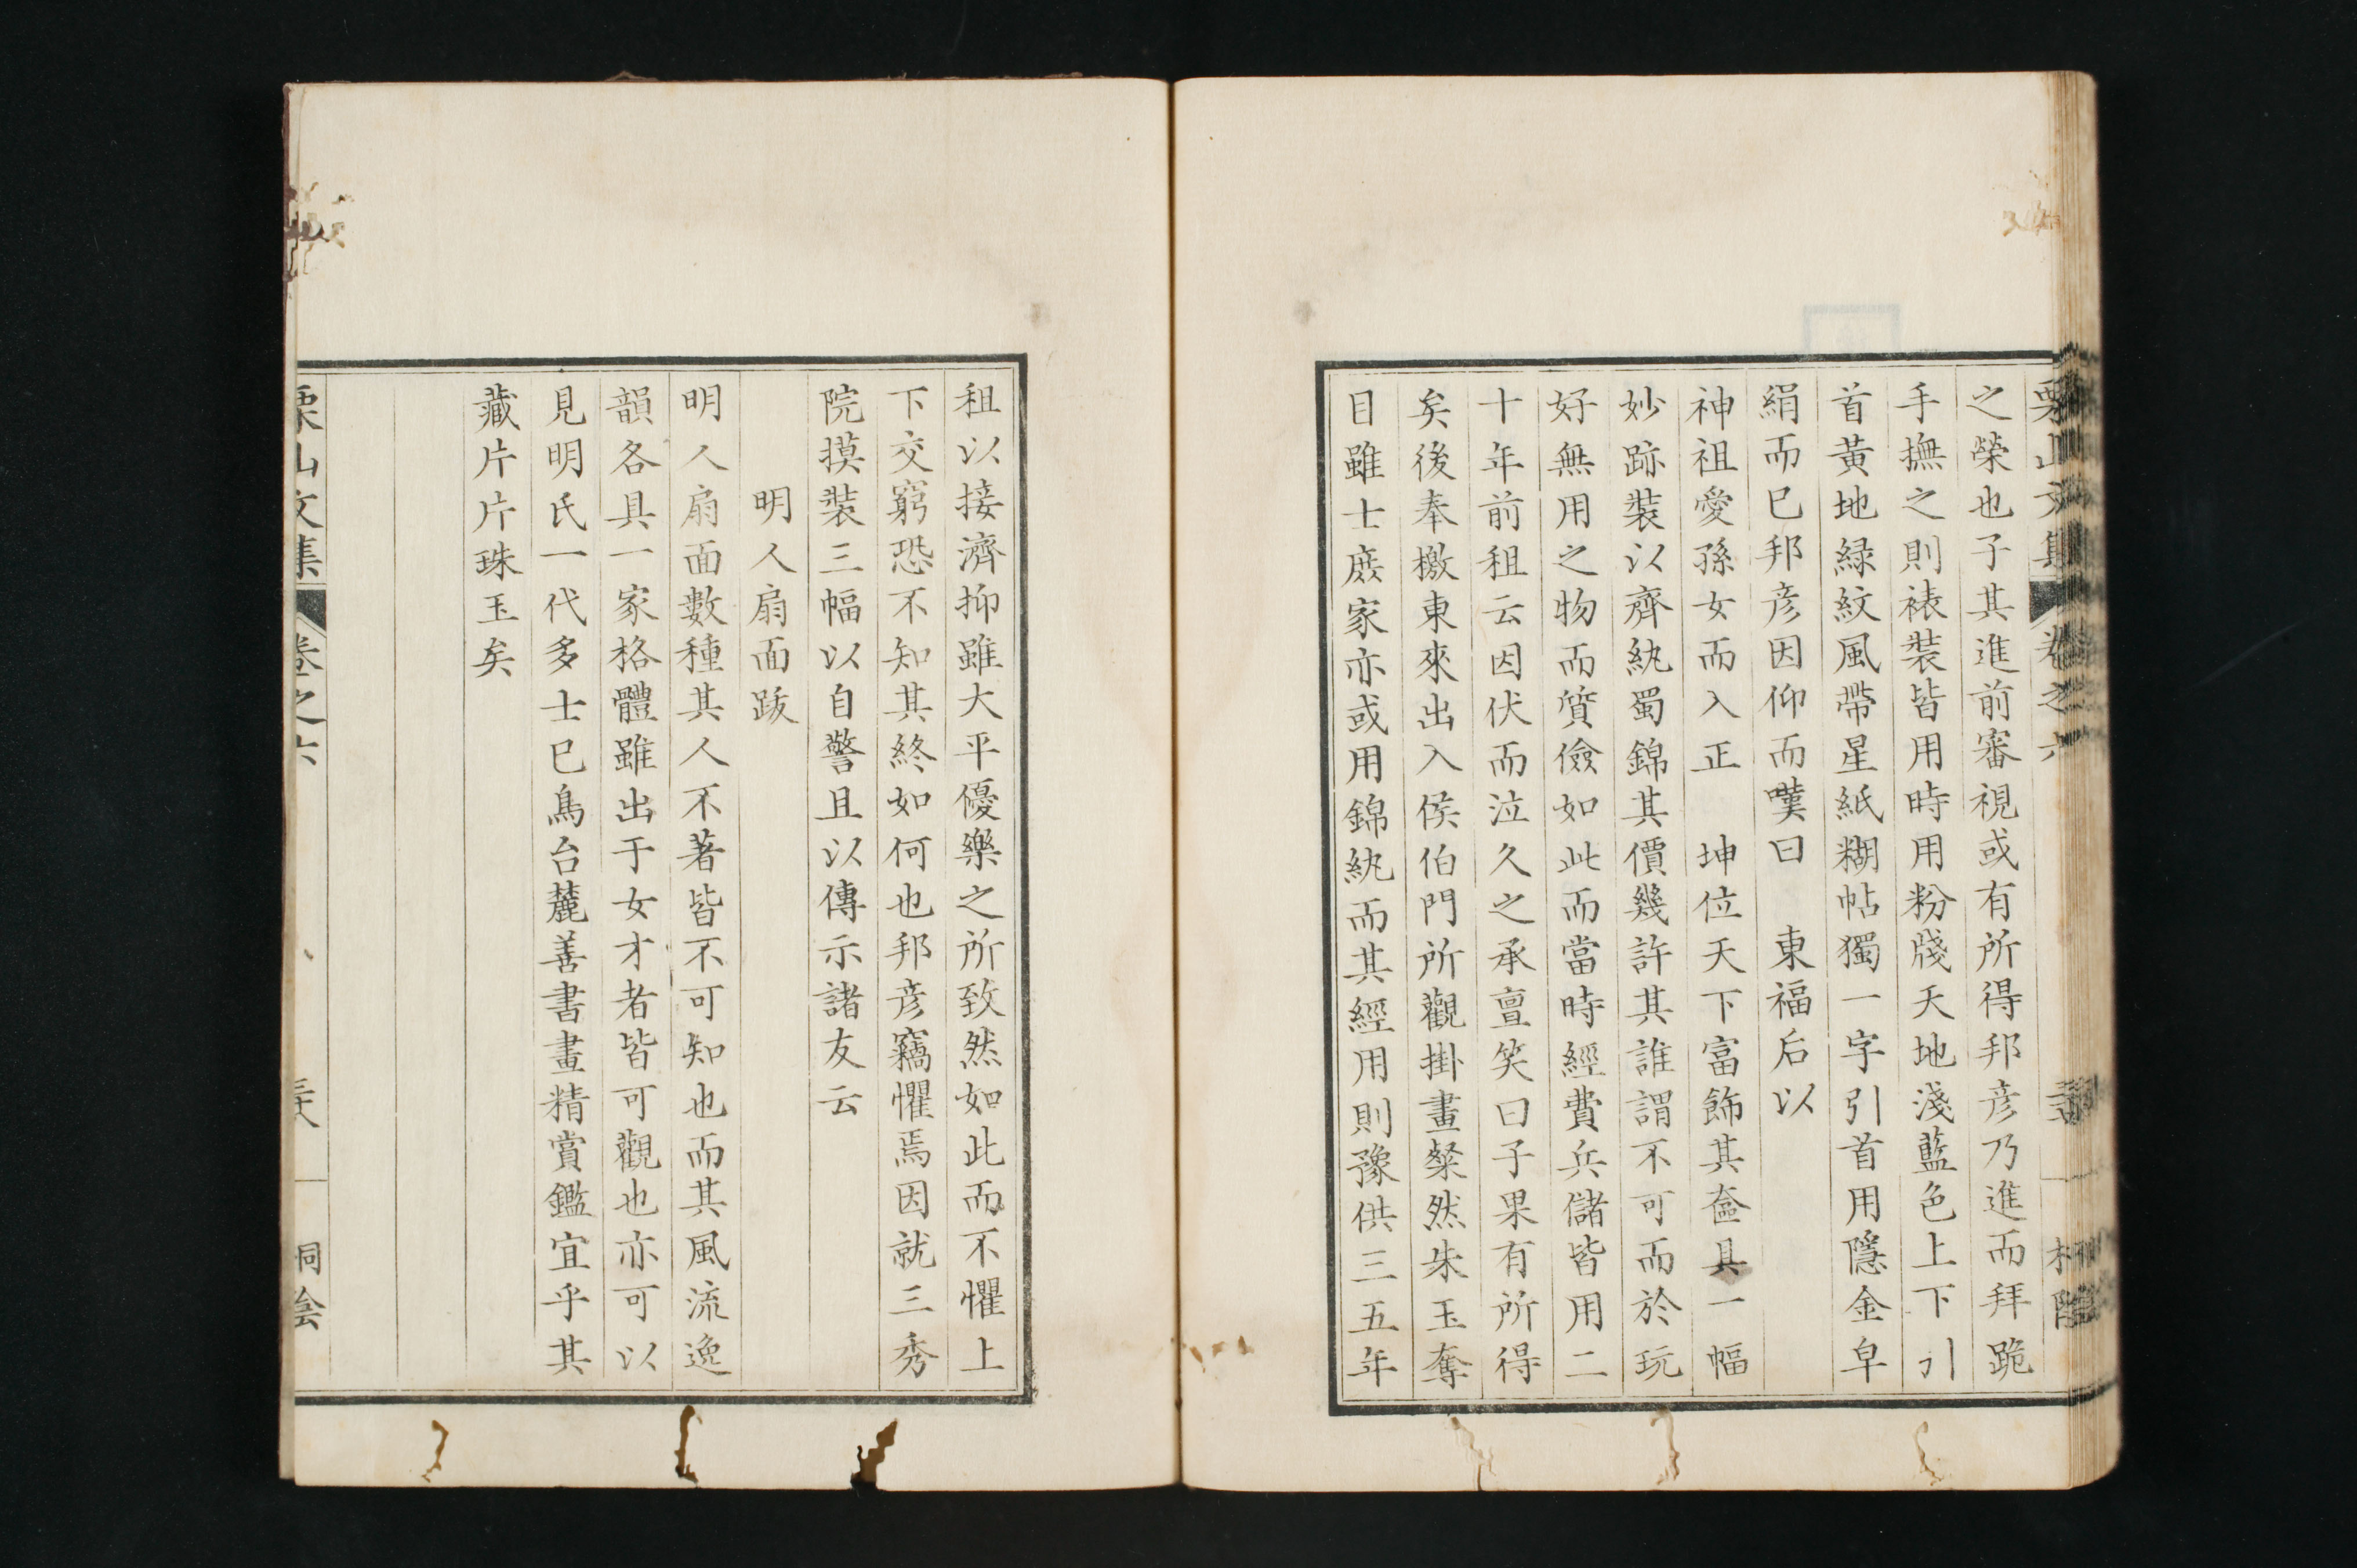 栗山文集 卷之六
之榮也子其進前審視或有所得邦彦乃進而拜跪
手撫之則裱裝皆用時用粉牋天地淺藍色上下引
首黃地緑紋風帶星紙糊帖獨一字引首用隱金皁
絹而已邦彦因仰而嘆曰 東福后以
神祖愛孫女而入正 坤位天下富飾其奩具一幅
妙跡裝以齊紈蜀錦其價幾許其誰謂不可而於玩
好無用之物而質儉如此而當時經費兵儲皆用二
十年前租云因伏而泣久之承亶笑曰子果有所得
矣後奉檄東來出入侯伯門所觀掛畫粲然朱玉奪
目雖士庻家亦或用錦紈而其經用則豫供三五年
租以接濟抑雖大平優樂之所致然如此而不懼上
下交窮恐不知其終如何也邦彦竊懼焉因就三秀
院摸裝三幅以自警且以傳示諸友云
明人扇面跋
明人扇面數種其人不著皆不可知也而其風流逸
韻各具一家格體雖出于女才者皆可觀也亦可以
見明氏一代多士巳鳥台麓善書畫精賞鑑宜乎其
藏片片珠玉矣
栗山文集 卷之六